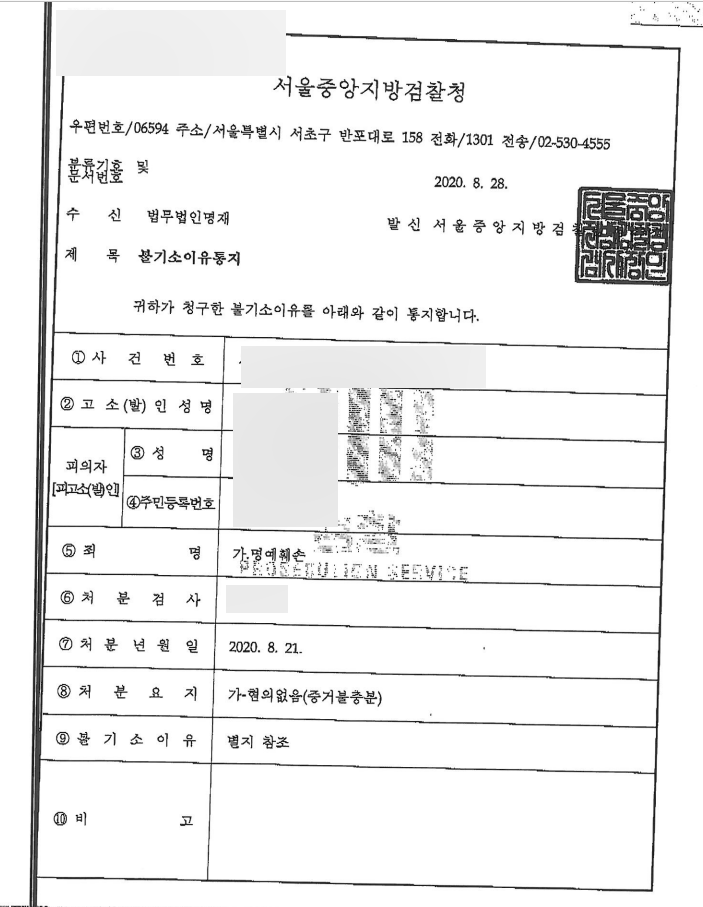 서울중앙지방검찰청
우편번호/06594 주소/서울특별시 서초구 반포대로 158 전화/1301 전송/02-530-4555
분류기호 및
문서번호
2020. 8. 28.
수 신 법무법인명재
발 신 서 울 중 앙 지 방 검 찰
제 목 불기소이유통지
귀하가 청구한 불기소이유를 아래와 같이 통지합니다.
① 사 건 번 호
② 고 소 (발) 인 성 명
피의자
[피고소(발)인]
③ 성 명
④ 주민등록번호
⑤ 죄 명
가.명예훼손
PROSECUTION SERVICE
⑥ 처 분 검 사
⑦ 처 분 년 원 일
2020. 8. 21.
⑧ 처 분 요 지
가-혐의없음(증거불충분)
⑨ 불 기 소 이 유
별지 참조
⑩ 비 고